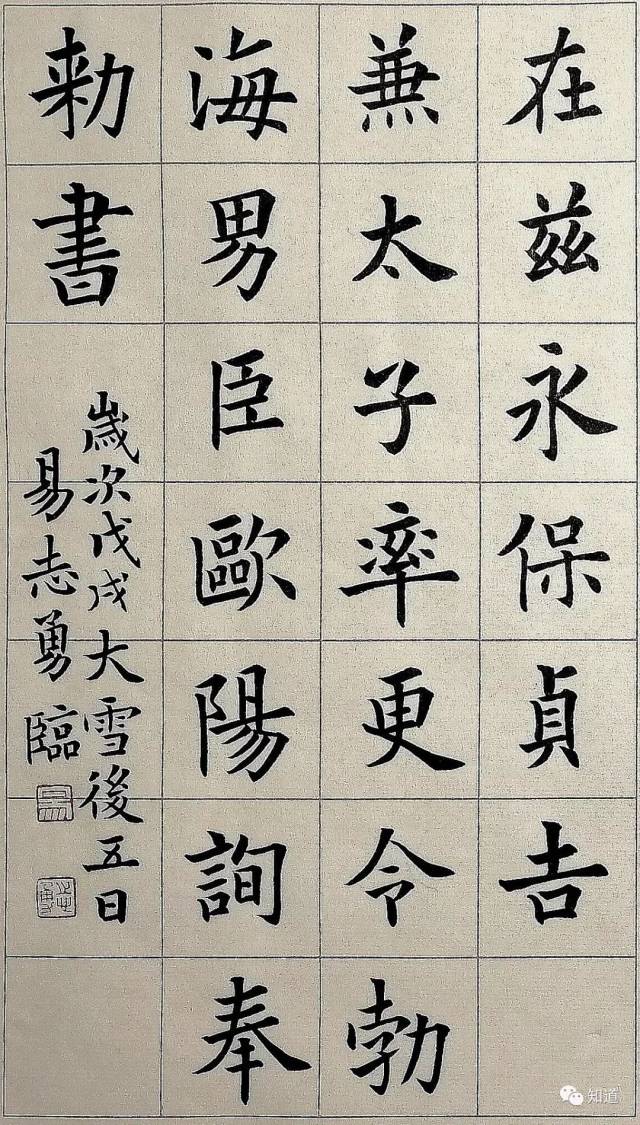 在茲永保貞吉
兼太子率更令勃
海男臣歐陽詢奉
勑書
歲次戊戌大雪後五日
易志勇臨
知道